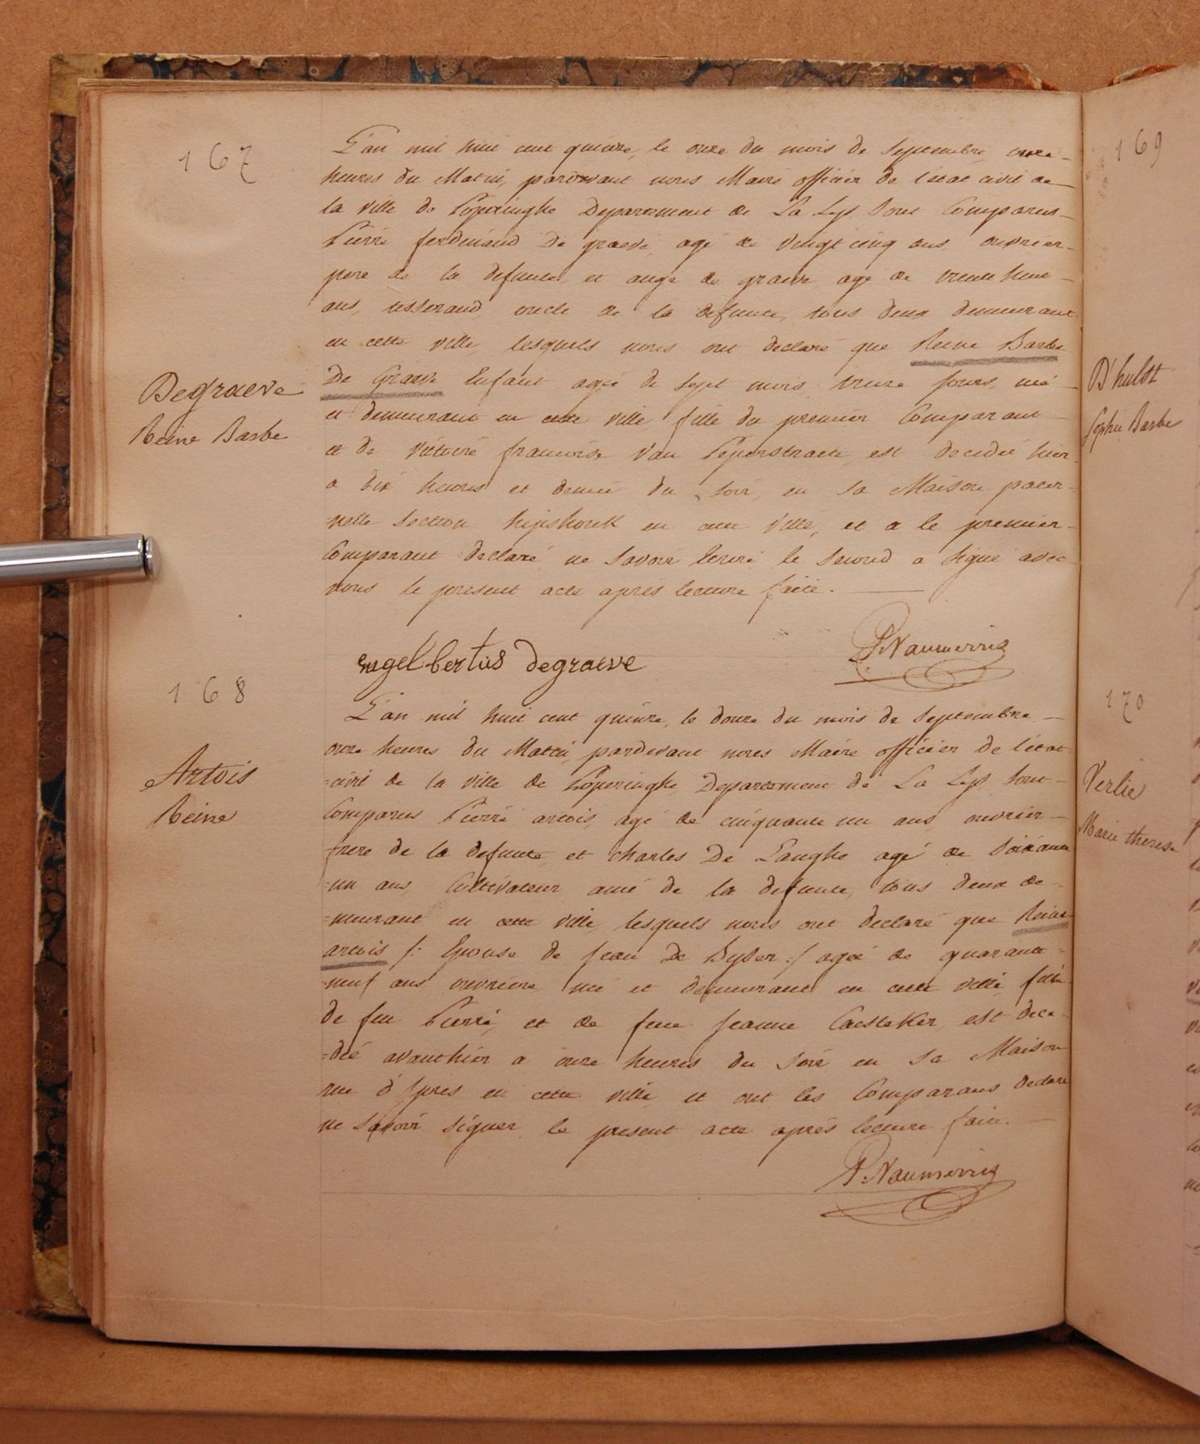 167
L'an mil huit cent quinze, le onze du mois de Septembre, onze
heures du Matin, pardevant nous Maire officier de l'etat civil de
la ville de Poperinghe Departement de La Lys sont Comparus
Pierre ferdinand De graeve, agé de vingt cinq ans ouvrier
pere de la defunte, et ange de graeve age de trente huit
ans, tisserand, oncle de la defunte, tous deux demeurant
en cette ville, lesquels nous ont declaré que Reine Barbe
De Graeve Enfant agée de sept mois treize jours, née
et demeurant en cette ville fille du premier Comparant
et de Victoire francoise Van Peperstraete, est decedée hier
a dix heures et demie du soir, en sa Maison pater-
nelle section hipshoek en cette Ville, et a le premier
Comparant declaré ne savoir Ecrire le second a signé avec
nous le present acte aprés lecture faite.
Degraeve
Reine Barbe
engelbertus degraeve
P. Vanmerris
168
L'an mil huit cent quinze, le douze du mois de Septembre
onze heures du Matin, pardevant nous Maire officier de l'état
=civil de la ville de Poperinghe Departement de La Lys sont
Comparus Pierre artois, agé de cinquante un ans, ouvrier
frere de la defunte et charles De Langhe agé de soixante
=un ans, Cultivateur amé de la defunte, tous deux de-
=meurant en cette ville, lesquels nous ont declaré que Reine
artois /: Epouse de Jean De Byser :/ agée de quarante
=neuf ans ouvriere née et demeurant en cette ville fille
de feu Pierre, et de feue Jeanne Caesteker, est dece-
=dée avanthier a onze heures du soir en sa Maison
rue d'Ypres en cette ville et ont les Comparans declaré
ne savoir signer le present acte aprés lecture faite.
Artois
Reine
P. Vanmerris
169
D'hulst
Sophie Barbe
170
Verlie
Marie therese